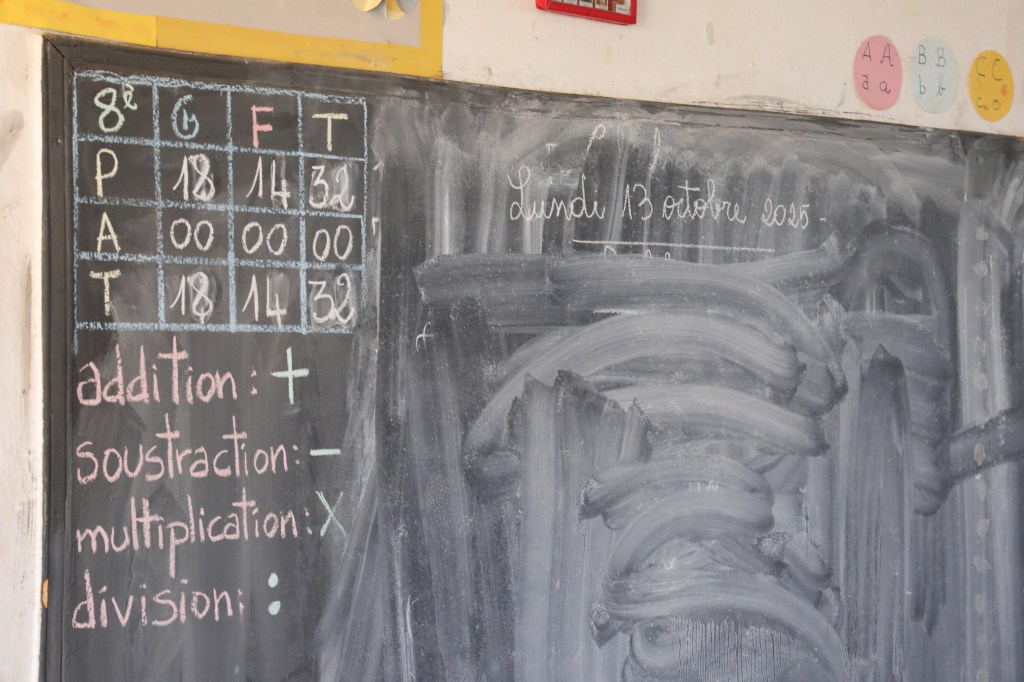 8e G F T
P 18 14 32
A 00 00 00
T 18 14 32
addition : +
soustraction: -
multiplication: X
division: :
Lundi 13 octobre 2025-
A A
a a
B B
b b
C C
c c